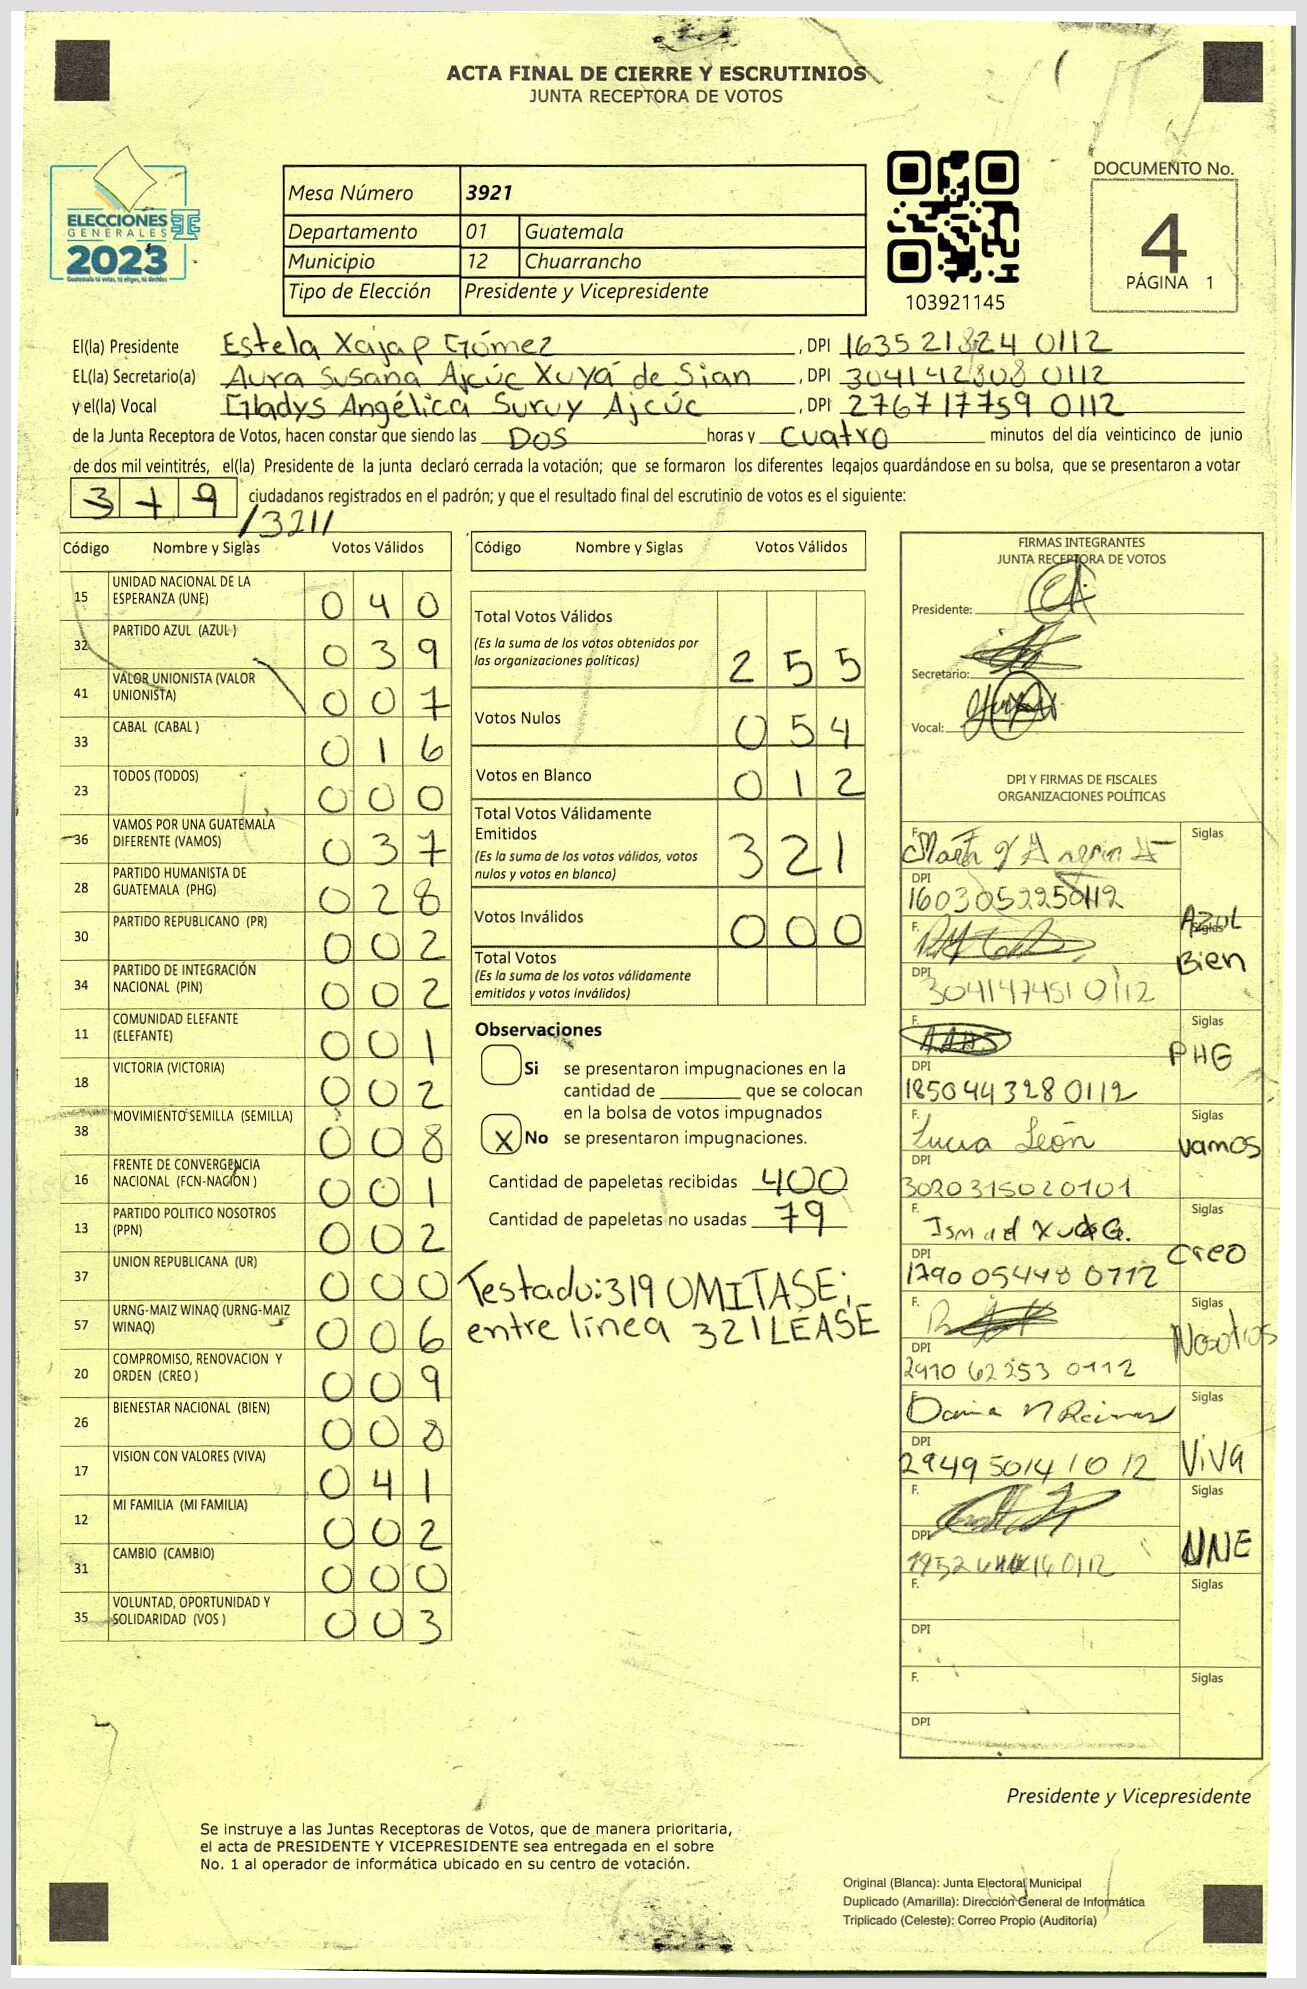 ACTA FINAL DE CIERRE Y ESCRUTINIOS
JUNTA RECEPTORA DE VOTOS
ELECCIONES
GENERALES
2023
Guatemala tú votas, tú eliges, tú decides
Mesa Número 3921
Departamento 01 Guatemala
Municipio 12 Chuarrancho
Tipo de Elección Presidente y Vicepresidente
103921145
DOCUMENTO No.
4
PÁGINA 1
El(la) Presidente Estela Xajap Gómez, DPI 1635 21824 0112
EL(la) Secretario(a) Aura Susana Ajcúc Xuyá de Sian, DPI 304142808 0112
y el(la) Vocal Gladys Angélica Suruy Ajcúc, DPI 276717759 0112
de la Junta Receptora de Votos, hacen constar que siendo las Dos horas y cuatro minutos del día veinticinco de junio
de dos mil veintitrés, el(la) Presidente de la junta declaró cerrada la votación; que se formaron los diferentes legajos guardándose en su bolsa, que se presentaron a votar
319 ciudadanos registrados en el padrón; y que el resultado final del escrutinio de votos es el siguiente:
/321/
Código Nombre y Siglas Votos Válidos
15 UNIDAD NACIONAL DE LA ESPERANZA (UNE) 040
32 PARTIDO AZUL (AZUL ) 039
41 VALOR UNIONISTA (VALOR UNIONISTA) 007
33 CABAL (CABAL ) 016
23 TODOS (TODOS) 000
36 VAMOS POR UNA GUATEMALA DIFERENTE (VAMOS) 037
28 PARTIDO HUMANISTA DE GUATEMALA (PHG) 028
30 PARTIDO REPUBLICANO (PR) 002
34 PARTIDO DE INTEGRACIÓN NACIONAL (PIN) 002
11 COMUNIDAD ELEFANTE (ELEFANTE) 001
18 VICTORIA (VICTORIA) 002
38 MOVIMIENTO SEMILLA (SEMILLA) 008
16 FRENTE DE CONVERGENCIA NACIONAL (FCN-NACION ) 001
13 PARTIDO POLITICO NOSOTROS (PPN) 002
37 UNION REPUBLICANA (UR) 000
57 URNG-MAIZ WINAQ (URNG-MAIZ WINAQ) 006
20 COMPROMISO, RENOVACION Y ORDEN (CREO ) 009
26 BIENESTAR NACIONAL (BIEN) 008
17 VISION CON VALORES (VIVA) 041
12 MI FAMILIA (MI FAMILIA) 002
31 CAMBIO (CAMBIO) 000
35 VOLUNTAD, OPORTUNIDAD Y SOLIDARIDAD (VOS ) 003
Código Nombre y Siglas Votos Válidos
Total Votos Válidos 255
(Es la suma de los votos obtenidos por
las organizaciones políticas)
Votos Nulos 054
Votos en Blanco 012
Total Votos Válidamente
Emitidos 321
(Es la suma de los votos válidos, votos
nulos y votos en blanco)
Votos Inválidos 000
Total Votos
(Es la suma de los votos válidamente
emitidos y votos inválidos)
Observaciones
Si se presentaron impugnaciones en la
cantidad de ________ que se colocan
en la bolsa de votos impugnados
X No se presentaron impugnaciones.
Cantidad de papeletas recibidas 400
Cantidad de papeletas no usadas 79
Testado: 319 OMITASE;
entre línea 321 LEASE
FIRMAS INTEGRANTES
JUNTA RECEPTORA DE VOTOS
Presidente:
Secretario:
Vocal:
DPI Y FIRMAS DE FISCALES
ORGANIZACIONES POLÍTICAS
F. Siglas
DPI 1603052250112 AZUL
F. Siglas
DPI 3041474510112 Bien
F. Siglas
DPI 1850443280112 PHG
F. Lucia León Siglas
DPI 3020315020101 vamos
F. Siglas
DPI 1790 05448 0112 Creo
F. Siglas
DPI 2910 62253 0112 Nosotros
F. Siglas
DPI 2949501410112 ViVa
F. Siglas
DPI UNE
F. Siglas
DPI
F. Siglas
DPI
Presidente y Vicepresidente
Se instruye a las Juntas Receptoras de Votos, que de manera prioritaria,
el acta de PRESIDENTE Y VICEPRESIDENTE sea entregada en el sobre
No. 1 al operador de informática ubicado en su centro de votación.
Original (Blanca): Junta Electoral Municipal
Duplicado (Amarilla): Dirección General de Informática
Triplicado (Celeste): Correo Propio (Auditoría)